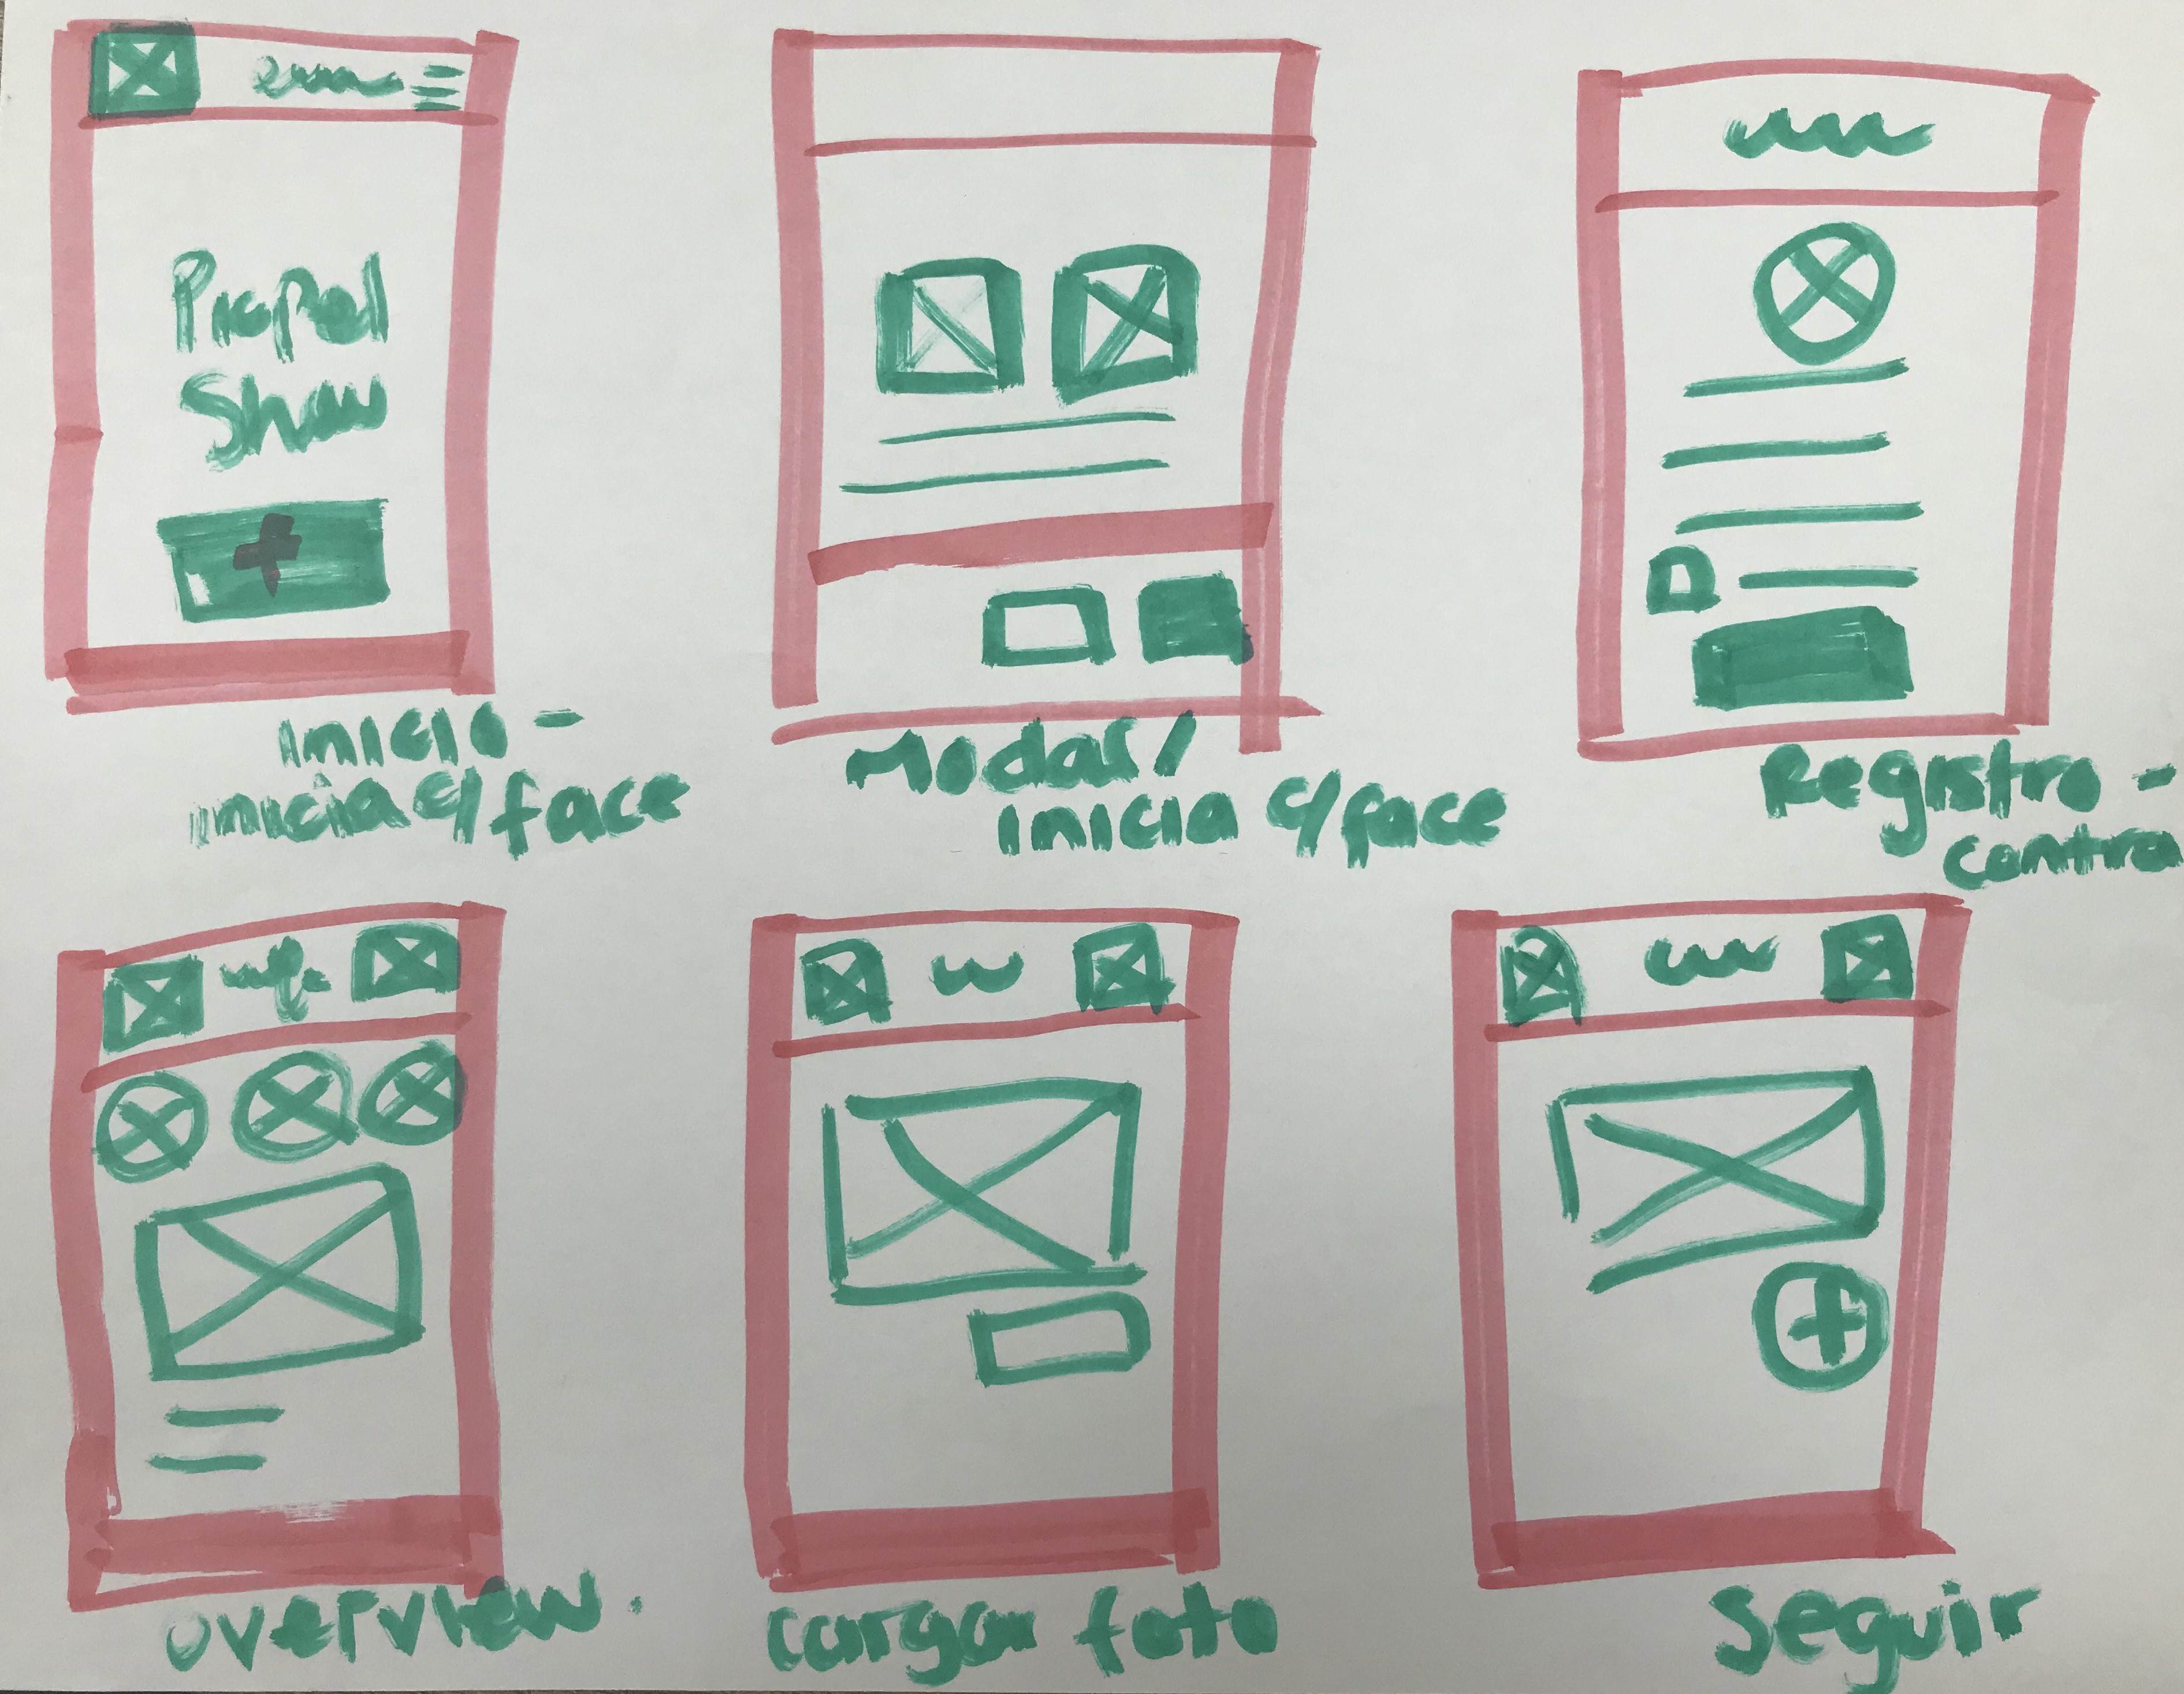 Propel
Show
Inicio -
inicia c/ face
Modal /
inicia c/face
Registro -
contra
overview.
cargar foto
seguir